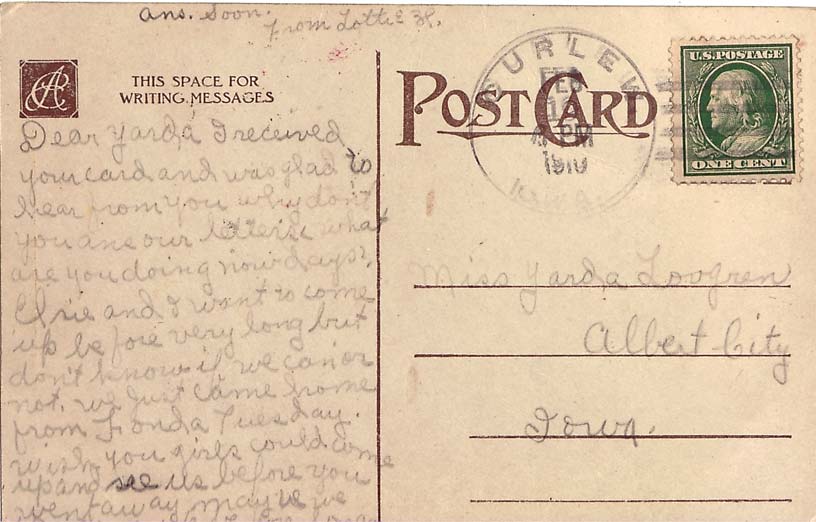 Ans. Soon.
From Lottie
THIS SPACE FOR
WRITING MESSAGES
Dear Yarda I received
your card and was glad to
hear from you why don't
you ans our letters, what
are you doing now days?
Elsie and I want to come
up before very long but
don't know if we can or
not. we just came home
from Fonda Tuesday.
wish you girls could come
up and see us before you
went away maybe we
POST CARD
CURLEW
FEB
PM
1910
IOWA
U.S. POSTAGE
ONE CENT
Miss Yarda Loogren
Albert City
Iowa.